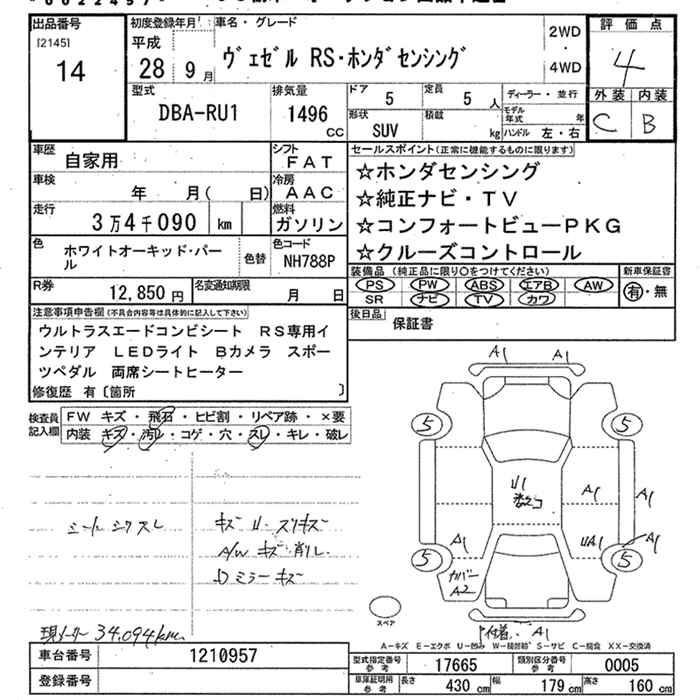 出品番号
[2145]
14
初度登録年月
平成
28 9 月
車名・グレード
ヴェゼル RS・ホンダセンシング
2WD
・
4WD
評価点
4
外装 内装
C B
型式
DBA-RU1
排気量
1496
CC
ドア
5
定員
5 人
形状
SUV
積載
kg
ディーラー・並行
モデル年式 年
ハンドル 左・右
車歴
自家用
シフト
FAT
車検
年 月( 日)
冷房
AAC
走行
3万4千090 km
燃料
ガソリン
色
ホワイトオーキッド・パール
色替
色コード
NH788P
R券
12,850 円
名変通知期限
月 日
セールスポイント(正常に機能するものに限ります)
☆ホンダセンシング
☆純正ナビ・TV
☆コンフォートビューPKG
☆クルーズコントロール
装備品 (純正品に限り○をつけてください)
PS PW ABS エアB AW
SR ナビ TV カワ
新車保証書
有・無
後日品
保証書
注意事項申告欄(不具合内容等は具体的に記入して下さい)
ウルトラスエードコンビシート RS専用イ
ンテリア LEDライト Bカメラ スポー
ツペダル 両席シートヒーター
修復歴 有〔箇所 〕
検査員記入欄
FW キズ・飛石・ヒビ割・リペア跡・×要
内装 キズ・汚レ・コゲ・穴・スレ・キレ・破レ
キズ U スリキズ
A/W キズ 削レ
D ミラーキズ
現メーター 34.094km
A1 A1
5 5
U1
A1
A1
A1
UA1
A1
5 5
カバー
A2
A1
スペア
A−キズ E−エクボ U−凹み S−サビ C−腐食 XX−交換済
車台番号
1210957
登録番号
型式指定番号 参考
17665
類別区分番号 参考
0005
車庫証明用 参考
長さ 430 cm
幅 179 cm
高さ 160 cm